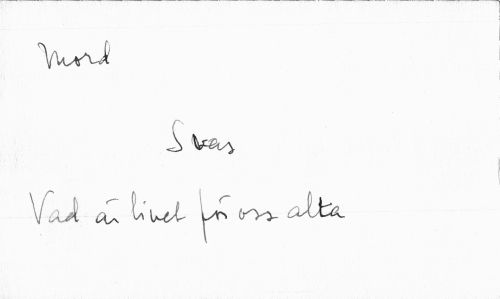 Mord
Svas
Vad är livet för oss alla